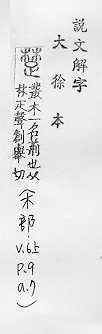 說文解字
大徐本
楚 叢木一名荊也从
林疋聲創舉切
(木部.
v.6上
p.9
a.7)